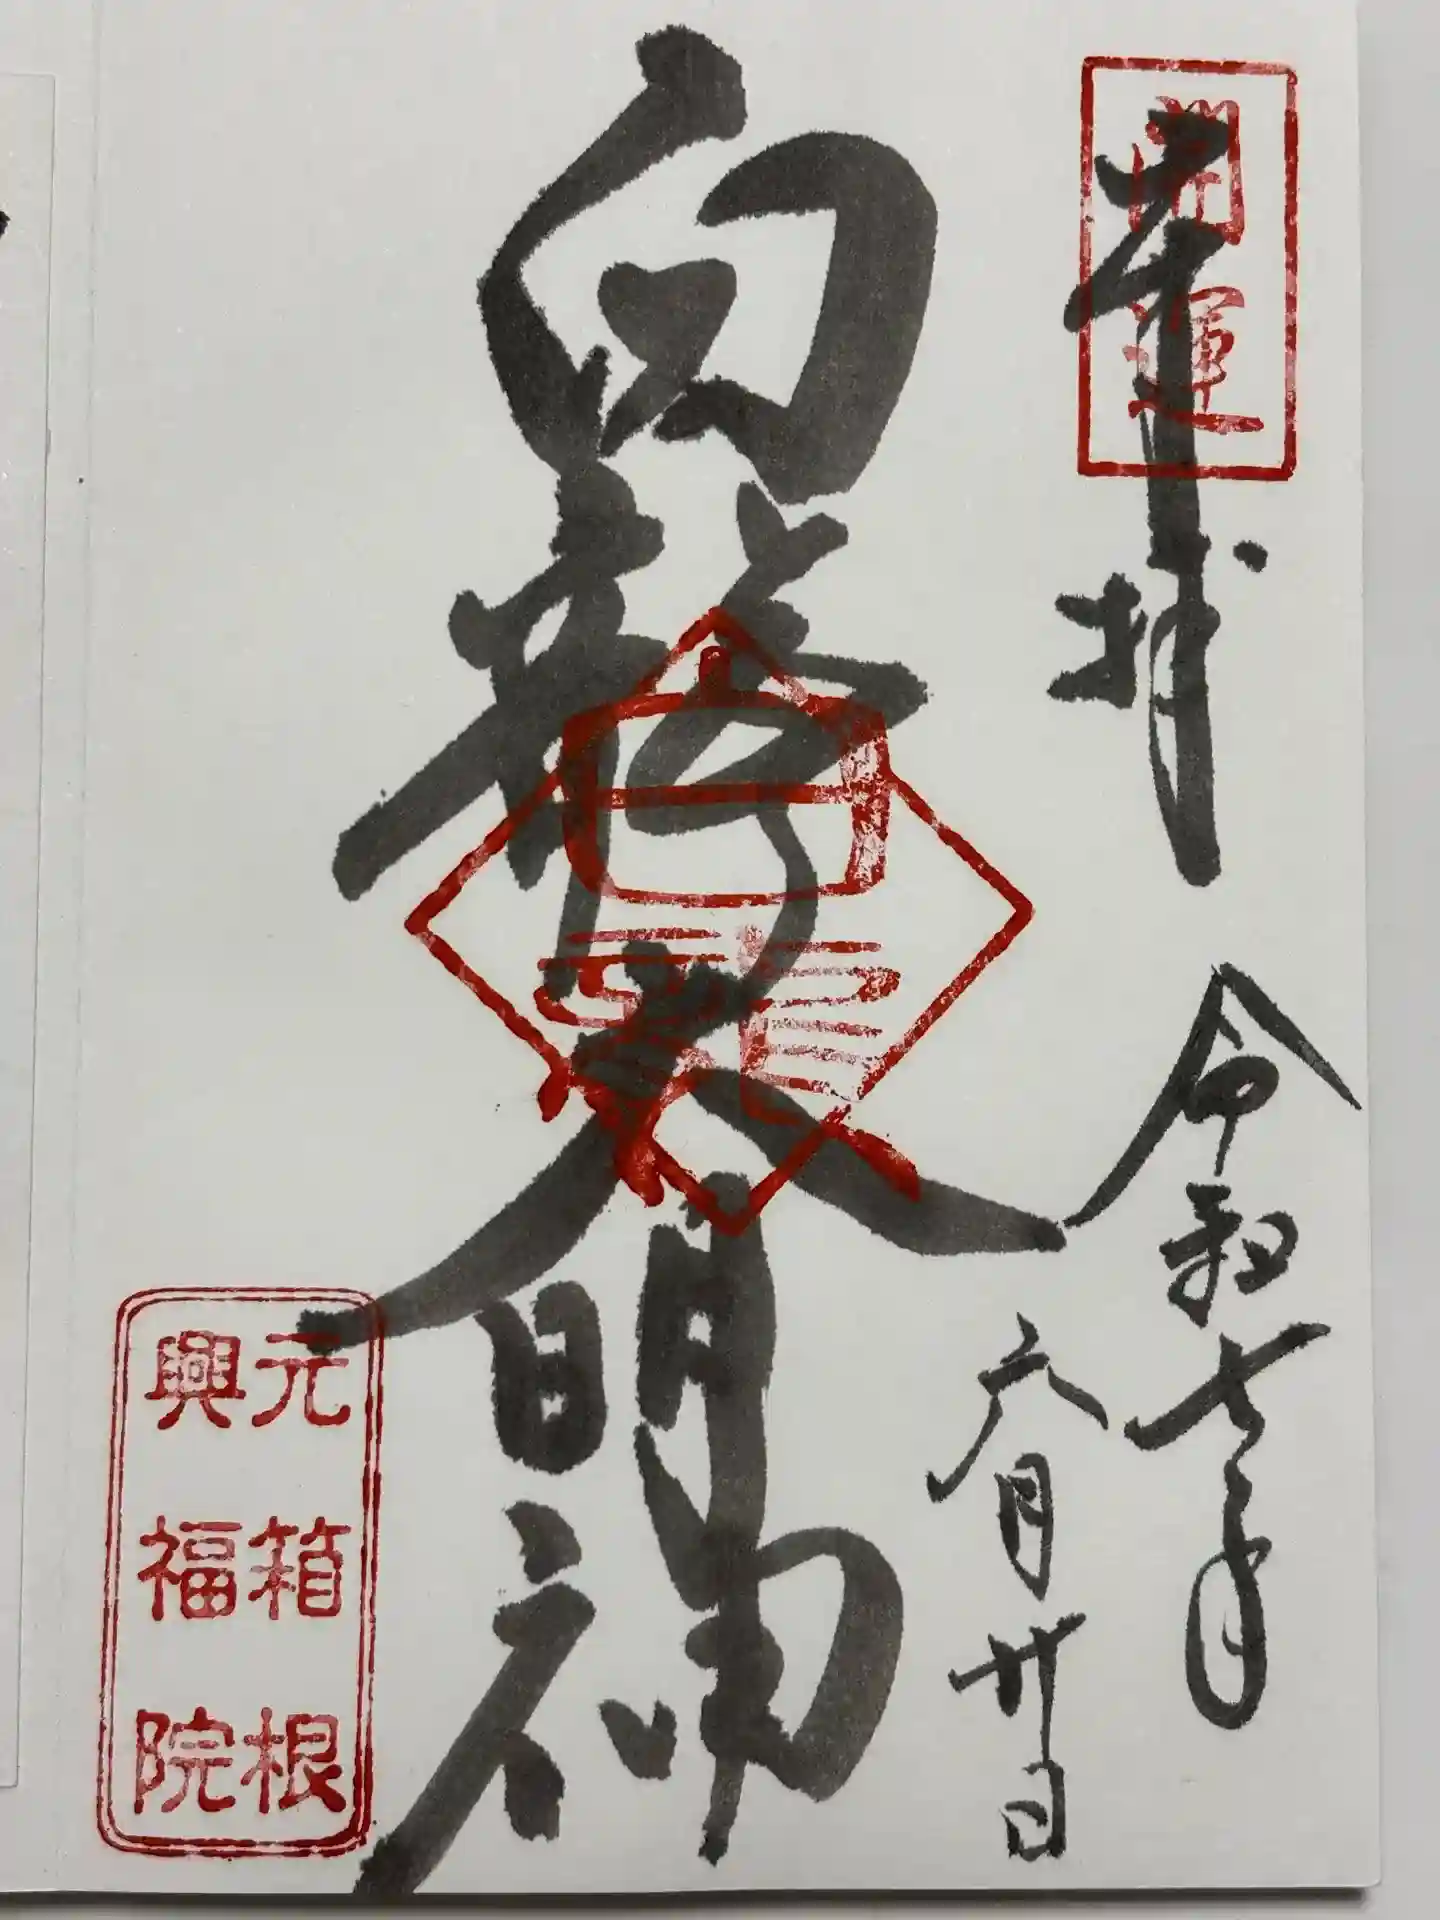 開運
奉拝
令和七年
六月廿日
白龍大明神
元箱根
興福院